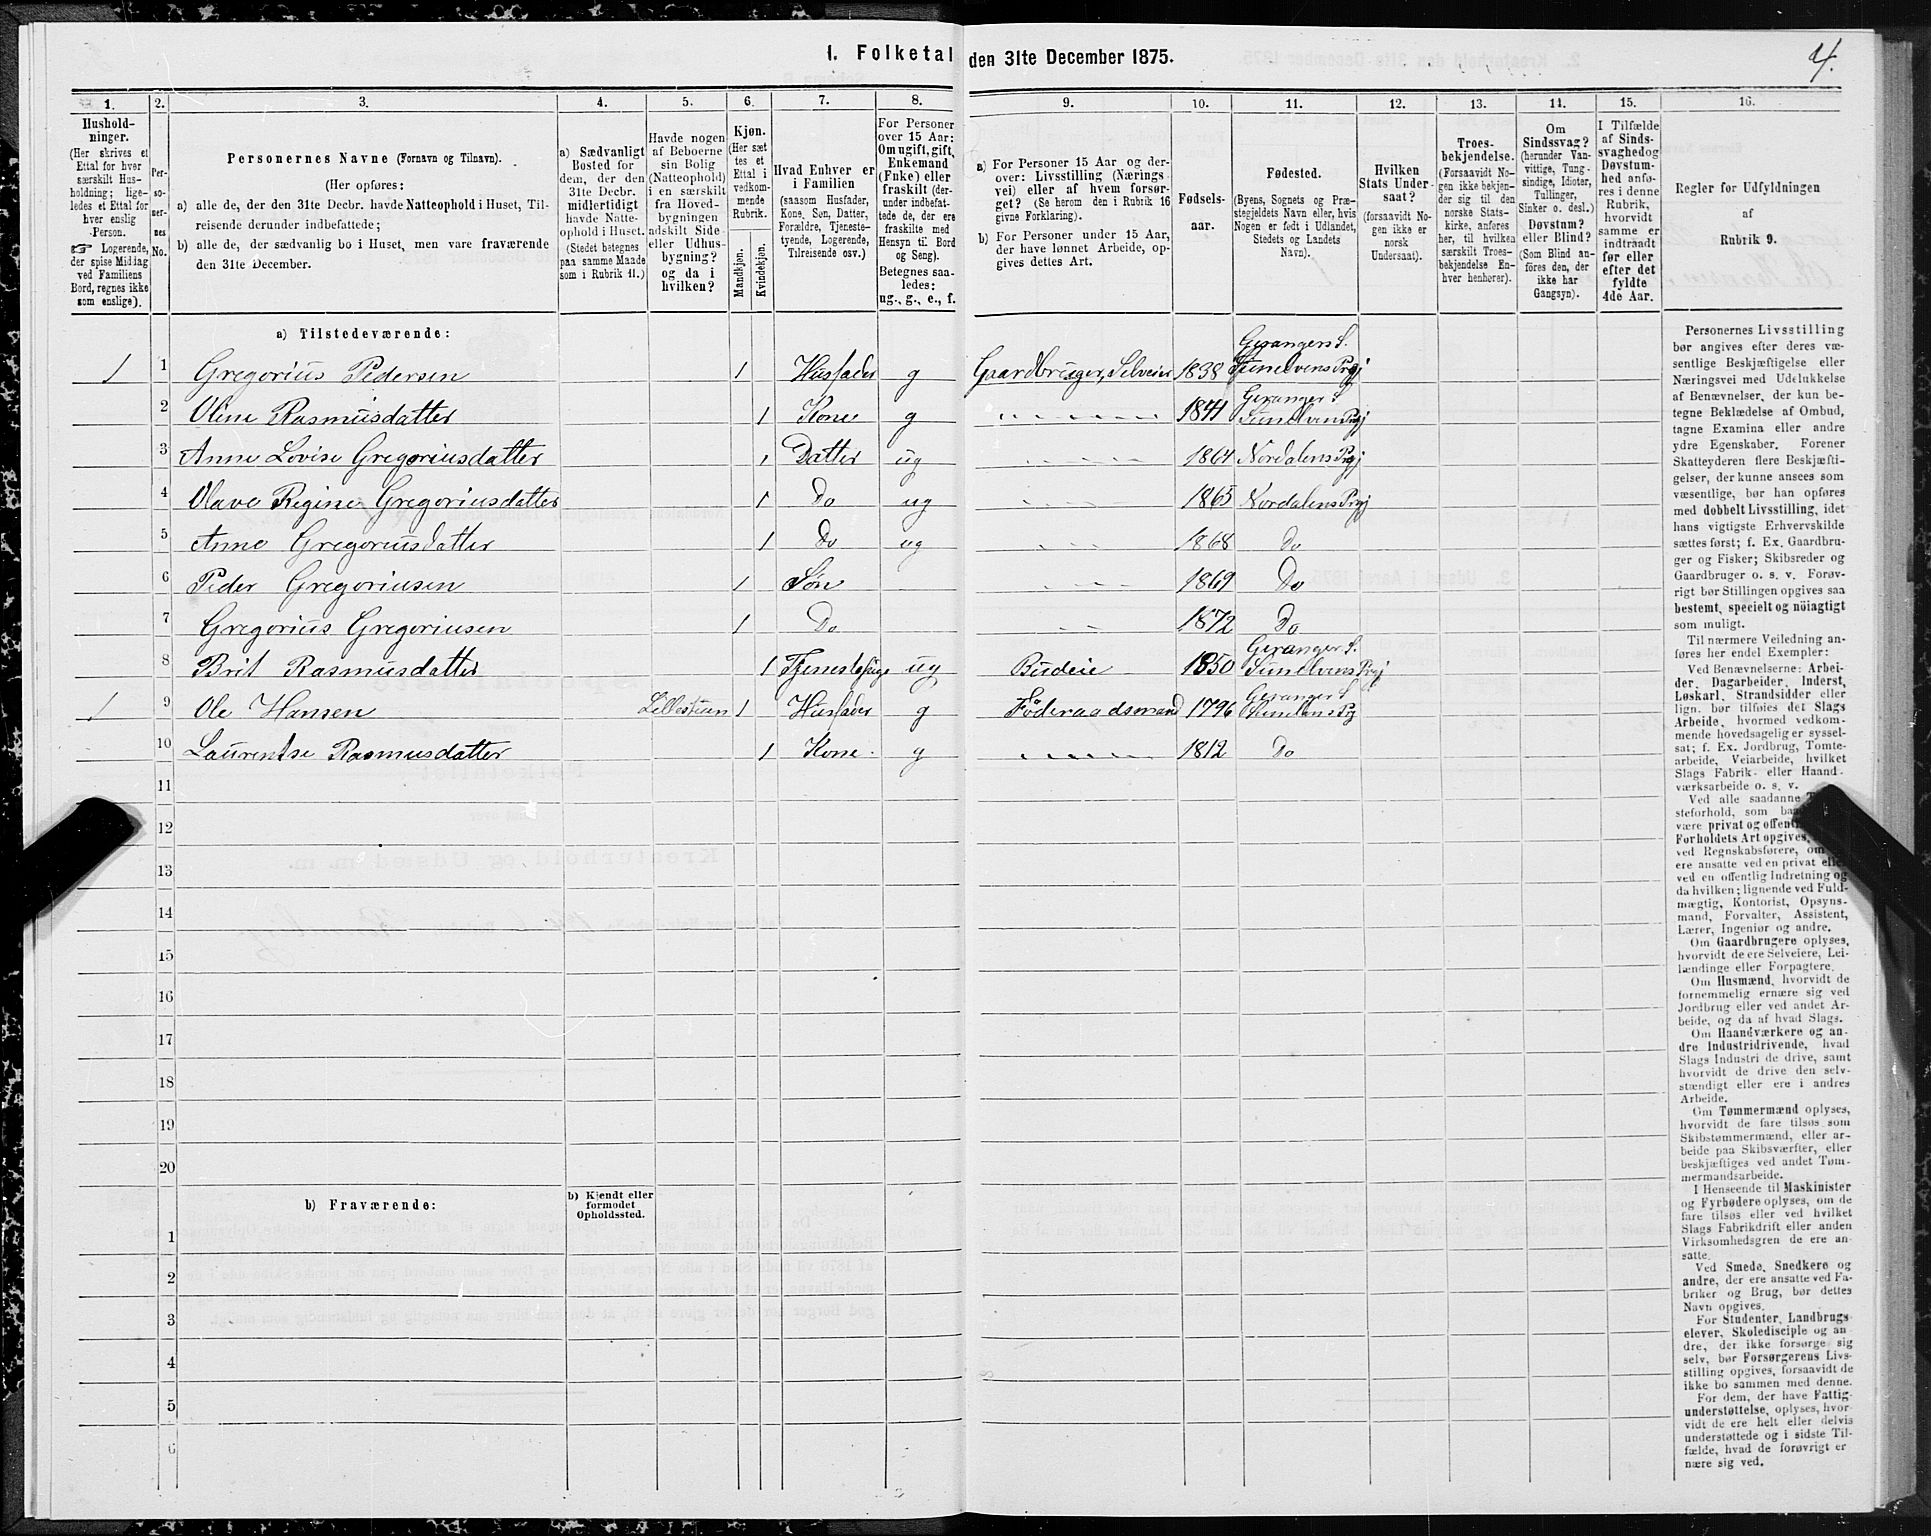 1. Folketal den 31te December 1875.
4.
1.
2.
3.
4.
5.
6.
7.
8.
9.
10.
11.
12.
13.
14.
15.
16.
Hushold-
ninger.
(Her skrives et
Ettal for hver
særskilt Hus-
holdning; lige-
ledes et Ettal for
hver enslig
Person.
☞ Logerende,
der spise Middag
ved Familiens
Bord, regnes ikke
som enslige).
Per-
so-
ner-
nes
No.
Personernes Navne (Fornavn og Tilnavn).
(Her opføres:
a) alle de, der den 31te Decbr. havde Natteophold i Huset, Til-
reisende derunder indbefattede;
b) alle de, der sædvanlig bo i Huset, men vare fraværende
den 31te December.
a) Sædvanligt
Bosted for
dem, der den
31te Decbr.
midlertidigt
havde Natte-
ophold i Huset.
(Stedet betegnes
paa samme Maade
som i Rubrik 11.)
Havde nogen
af Beboerne
sin Bolig
(Natteophold)
i en særskilt
fra Hoved-
bygningen
adskilt Side-
eller Udhus-
bygning?
og da i
hvilken?
Kjøn.
(Her sæt-
tes et
Ettal i
vedkom-
mende
Rubrik.
Mandkjøn.
Kvindekjøn.
Hvad Enhver er
i Familien
(saasom Husfader,
Kone, Søn, Datter,
Forældre, Tjeneste-
tyende, Logerende,
Tilreisende osv.)
For Personer
over 15 Aar:
Om ugift, gift,
Enkemand
(Enke) eller
fraskilt (der-
under indbefat-
tede de, der ere
fraskilte med
Hensyn til Bord
og Seng).
Betegnes saa-
ledes:
ug., g., e., f.
a) For Personer 15 Aar og der-
over: Livsstilling (Nærings-
vei) eller af hvem forsør-
get? (Se herom den i Rubrik 16
givne Forklaring).
b) For Personer under 15 Aar,
der have lønnet Arbeide, op-
gives dettes Art.
Fødsels-
aar.
Fødested.
(Byens, Sognets og Præ-
stegjeldets Navn eller, hvis
Nogen er født i Udlandet,
Stedets og Landets
Navn).
Hvilken
Stats Under-
saat?
(forsaavidt No-
gen ikke er
norsk
Undersaat).
Troes-
bekjendelse.
(Forsaavidt No-
gen ikke bekjen-
der sig til den
norske Stats-
kirke, anføres
her, til hvilken
særskilt Troes-
bekjendelse En-
hver henhører).
Om
Sindssvag?
(herunder Van-
vittige, Tung-
sindige, Idioter,
Tullinger,
Sinker o. desl.)
Døvstum?
eller Blind?
(Som Blind an-
føres den, der
ikke har
Gangsyn).
I Tilfælde
af Sinds-
svaghed og
Døvstum-
hed anfø-
res i denne
Rubrik,
hvorvidt
samme er
indtraadt
før eller
efter det
fyldte
4de Aar.
Regler for Udfyldningen
af
Rubrik 9.
a) Tilstedeværende:
1 1 Gregorius Pedersen 1 Husfader g Gaardbruger, Selveier 1838 Gerangers S. Sunelvens Prgj
2 Oline Rasmusdatter 1 Kone g 〃 1841 Geranger S Sunelvens Prgj
3 Anne Lovise Gregoriusdatter 1 Datter ug 〃 1864 Nordalens Prgj
4 Olave Regine Gregoriusdatter 1 Do ug 〃 1865 Nordalens Prgj
5 Anne Gregoriusdatter 1 Do ug 〃 1868 Do
6 Peder Gregoriusen 1 Søn 〃 1869 Do
7 Gregorius Gregoriusen 1 Do 〃 1872 Do
8 Brit Rasmusdatter 1 Tjenestepige ug Budeie 1850 Geranger S. Sunelvens Prgj
1 9 Ole Hansen Lillestuen 1 Husfader g Føderaadsmand 1796 Geranger S Sunelvens Prg
10 Laurentse Rasmusdatter 1 Kone g 〃 1812 Do
11
12
13
14
15
16
17
18
19
20
b) Fraværende:
b) Kjendt eller
formodet
Opholdssted.
1
2
3
4
5
6
Personernes Livsstilling
bør angives efter deres væ-
sentlige Beskjæftigelse eller
Næringsvei med Udelukkelse
af Benævnelser, der kun be-
tegne Beklædelse af Ombud,
tagne Examina eller andre
ydre Egenskaber. Forener
Skatteyderen flere Beskjæfti-
gelser, der kunne ansees som
væsentlige, bør han opføres
med dobbelt Livsstilling, idet
hans vigtigste Erhvervskilde
sættes først; f. Ex. Gaardbru-
ger og Fisker; Skibsreder og
Gaardbruger o. s. v. Forøv-
rigt bør Stillingen opgives saa
bestemt, specielt og nöiagtigt
som muligt.
Til nærmere Veiledning an-
føres her endel Exempler:
Ved Benævnelserne: Arbei-
der, Dagarbeider, Inderst,
Løskarl, Strandsidder eller
lign. bør tilføies det Slags
Arbeide, hvormed vedkom-
mende hovedsagelig er syssel-
sat; f. Ex. Jordbrug, Tomte-
arbeide, Veiarbeide, hvilket
Slags Fabrik- eller Haand-
værksarbeide o. s. v.
Ved alle saadanne
steforhold, som
være privat og
Forholdets Art opgives,
ved Regnskabsførere,
ere ansatte ved en privat
ved en offentlig Indretning og
da hvilken; lignende ved Fuld-
mægtig, Kontorist, Opsyns-
mand, Forvalter, Assistent,
Lærer, Ingeniør og andre.
Om Gaardbrugere oplyses,
hvorvidt de ere Selveiere, Lei-
lændinge eller Forpagtere.
Om Husmænd, hvorvidt de
fornemmelig ernære sig ved
Jordbrug eller ved andet Ar-
beide, og da af hvad Slags.
Om Haandværkere og an-
dre Industridrivende, hvad
Slags Industri de drive, samt
hvorvidt de drive den selv-
stændigt eller ere i andres
Arbeide.
Om Tømmermænd oplyses,
hvorvidt de fare tilsøs som
Skibstømmermænd, eller ar-
beide paa Skibsværfter, eller
beskjæftiges ved andet Tøm-
mermandsarbeide.
I Henseende til Maskinister
og Fyrbødere oplyses, om de
fare tilsøs eller ved hvilket
Slags Fabrikdrift eller anden
Virksomhedsgren de ere an-
satte.
Ved Smede, Snedkere og
andre, der ere ansatte ved Fa-
briker og Brug, bør dettes
Navn opgives.
For Studenter, Landbrugs-
elever, Skoledisciple og an-
dre, der ikke forsørge sig
selv, bør Forsørgerens Livs-
stilling opgives, forsaavidt de
ikke bo sammen med denne.
For dem, der have Fattig-
understøttelse, oplyses, hvor-
vidt de ere helt eller delvis
understøttede og i sidste Til-
fælde, hvad de forøvrigt er
nære sig ved.